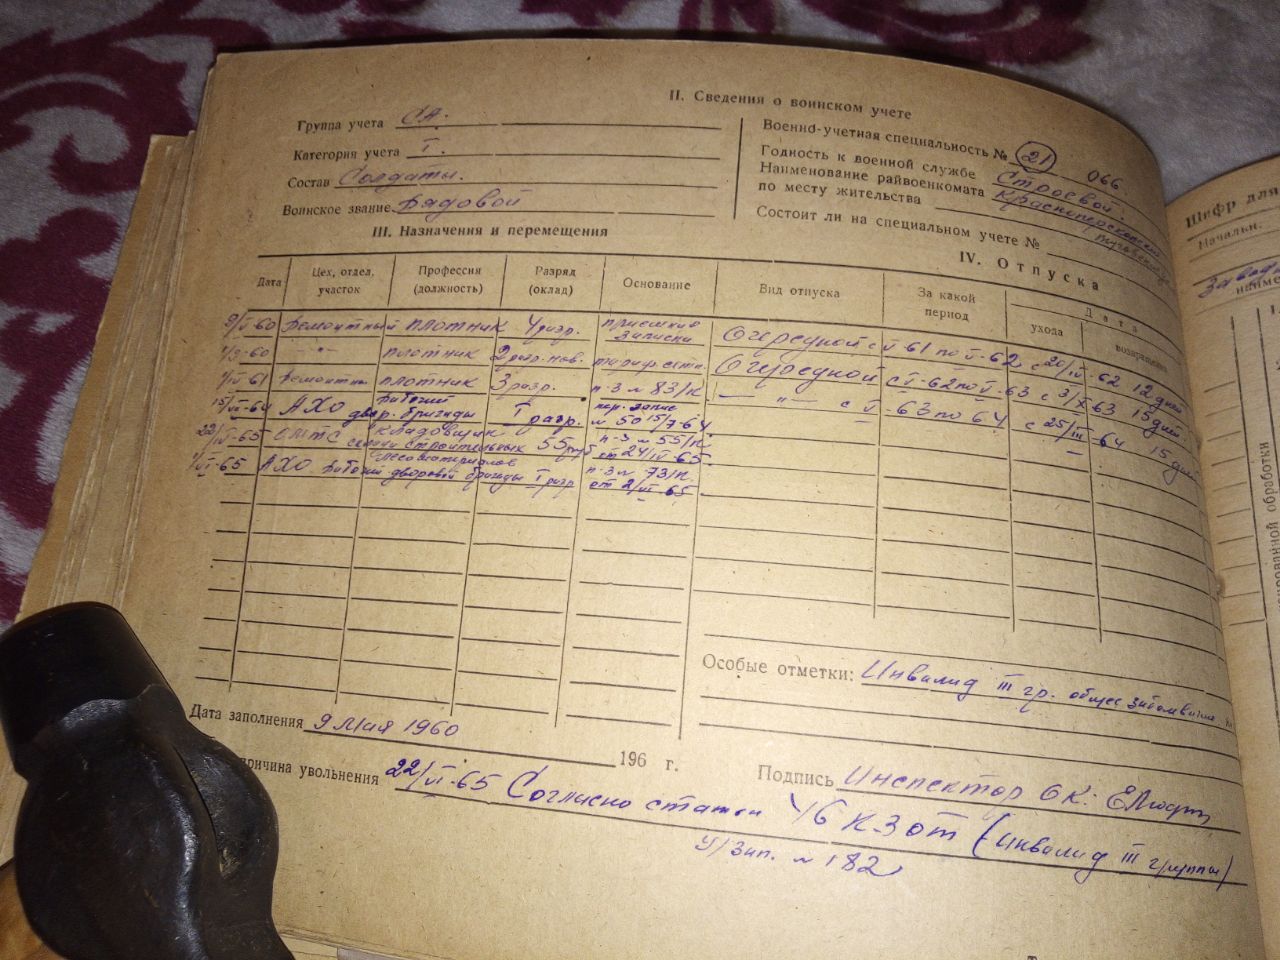 II. Сведения о воинском учете
Группа учета СА.
Категория учета I.
Состав Солдаты.
Воинское звание Рядовой
Военно-учетная специальность № 21 066
Годность к военной службе Строевой.
Наименование райвоенкомата
по месту жительства
Состоит ли на специальном учете №
III. Назначения и перемещения
Дата Цех, отдел, участок Профессия (должность) Разряд (оклад) Основание
9/V-60 Ремонтный плотник 4 разр. приемная записка
плотник 2 разр. нов.
Ремонтн. плотник 3 разр. п-з № 83/к
15/VII-64 АХО рабочий двор. бригады I разр. пер. запис № 50 15/7-64
22/IV-65 ОМТС кладовщик строительных лесоматериалов 55 руб п-з № 55/к. от 24/IV-65.
АХО рабочий дворовой бригады I разр п-з № 73/к. от 2/VI-65
IV. Отпуска
Вид отпуска За какой период Дата ухода возвращения
Очередной с V-61 по V-62 с 20/IV-62 12 дней
Очередной с V-62 по V-63 с 3/X-63 15 дней.
— " — с V-63 по 64 с 25/III-64 15 дней
Особые отметки: Инвалид III гр. общее
Дата заполнения 9 мая 1960
196 г.
Подпись Инспектор ОК:
ричина увольнения 22/VI-65 Согласно статьи 46 КЗОТ (инвалид III группы)
У/Зап. № 182
Шифр для
Начальн.
наиме
рованной обработки